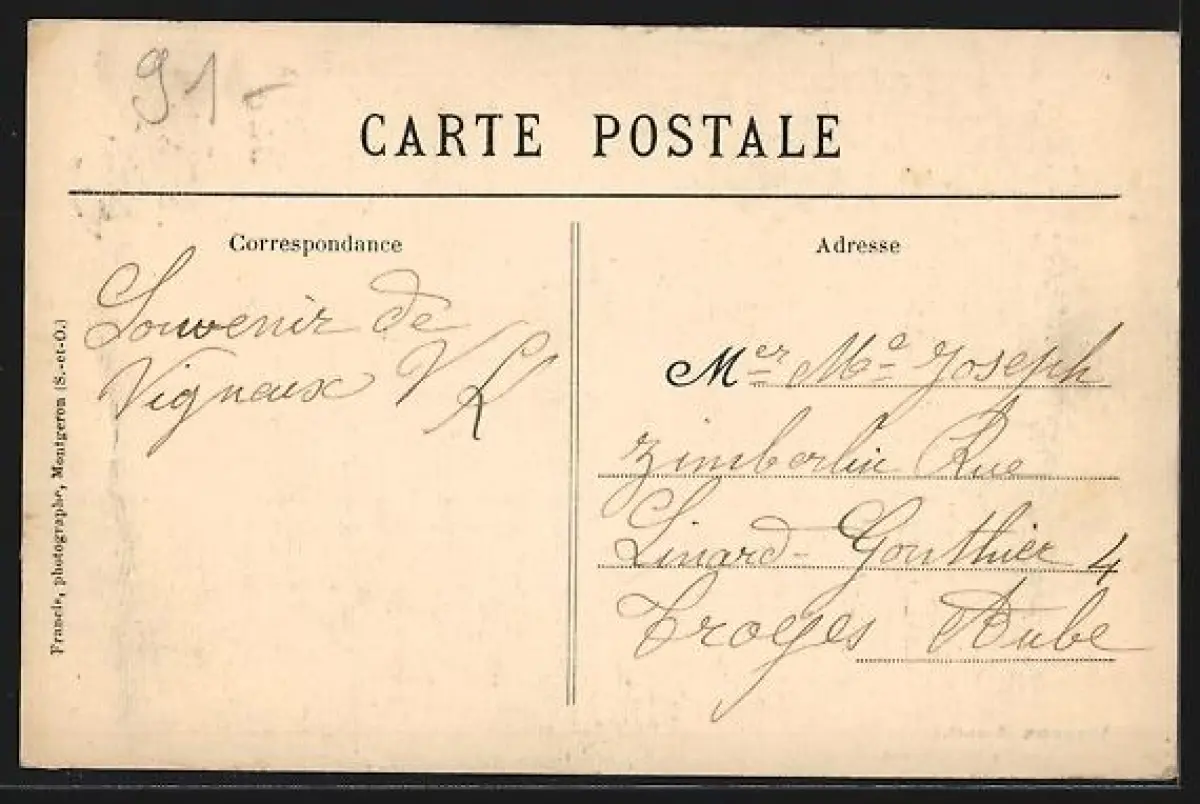 91-
CARTE POSTALE
Correspondance
Souvenir de
Vigneux V L
Adresse
Mer Me Joseph
Zimberlin Rue
Linard-Gonthier 4
Troyes Aube
Francis, photographe, Montgeron (S.-et-O.)